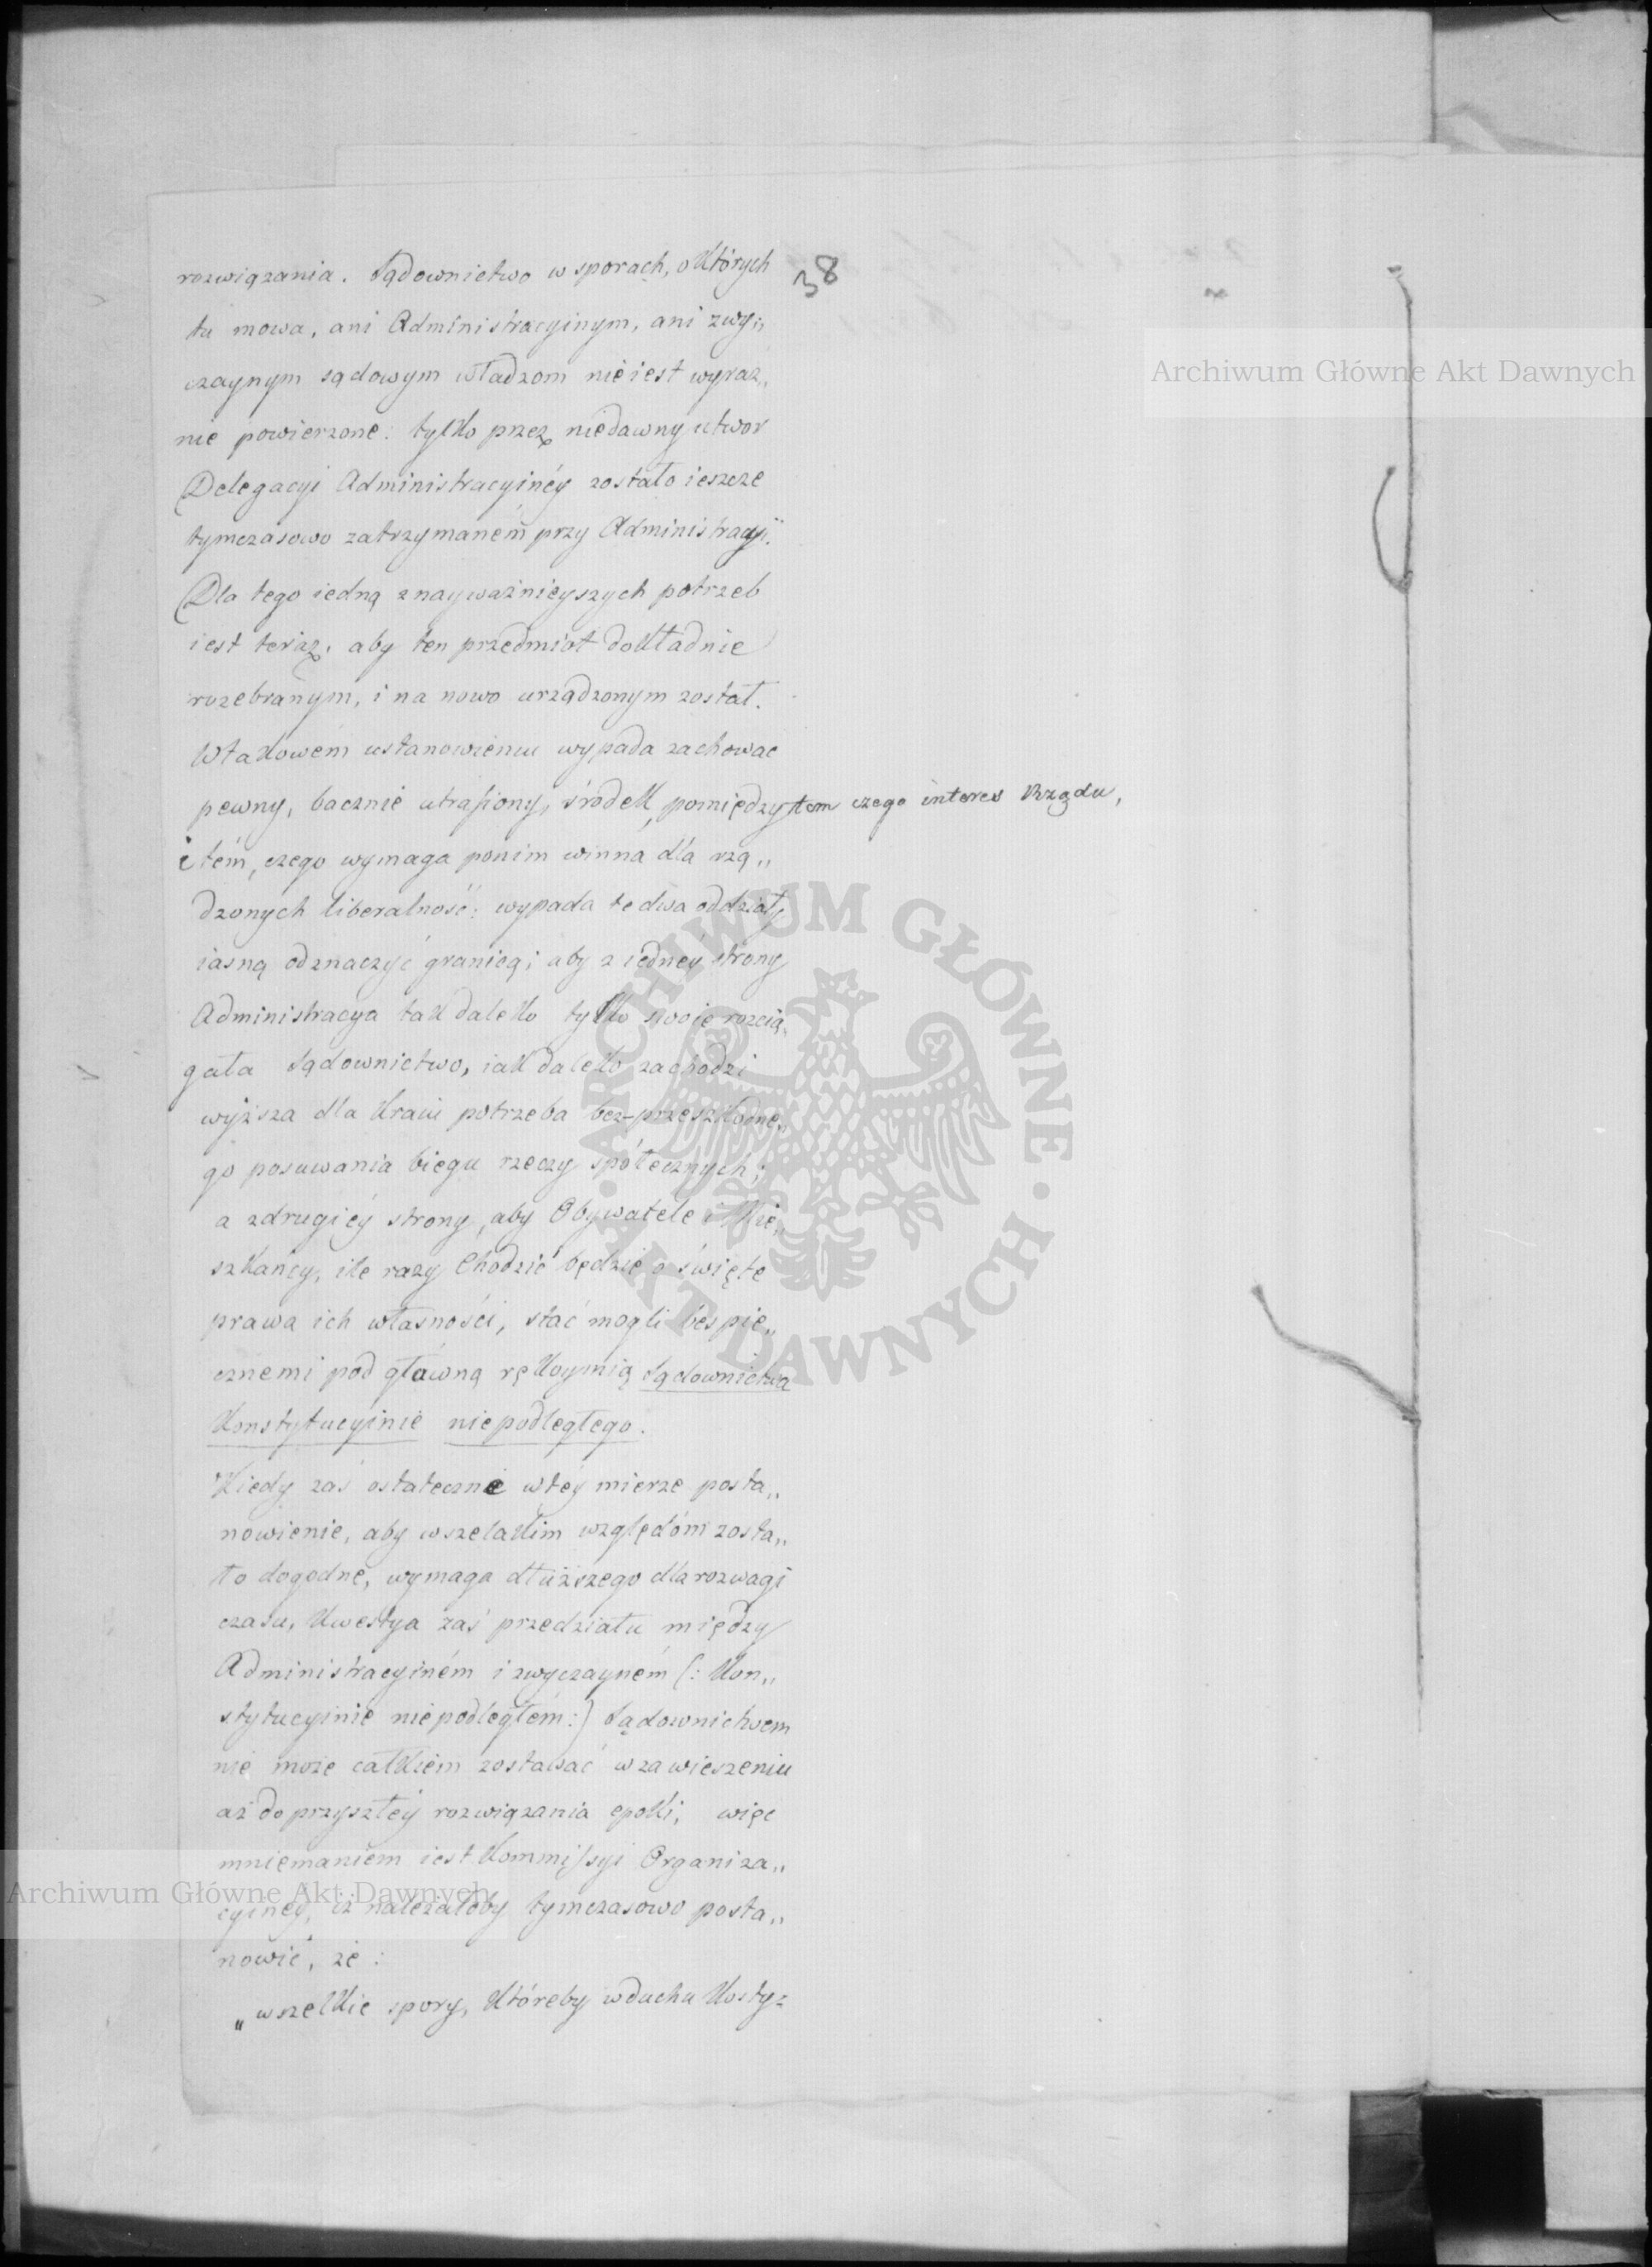 38
rozwiązania. Sądownictwo w sporach, o których
tu mowa, ani Administracyinym, ani zwy„
czaynym sądowym władzom nie iest wyraź„
nie powierzone: tylko przez niedawny utwor
Delegacyi Administracyinéy zostało ieszcze
tymczasowo zatrzymaném przy Administracyi.
Dla tego iedną z naywaźnieyszych potrzeb
iest teraz, aby ten przedmiot dokładnie
rozebranym, i na nowo urządzonym został.
W takowém ustanowieniu wypada zachować
pewny, bacznie utrafiony, środek, pomiędzy tem czego interes Rządu,
i tém, czego wymaga po nim winna dla rzą„
dzonych liberalność: wypada te dwa oddziały
iasną odznaczyć granicą; aby z iednéy strony
Administracya tak daleko tylko swoie rozcią„
gała Sądownictwo, iak daleko zachodzi
wyższa dla kraiu potrzeba bez-przeszkodne„
go posuwania biegu rzeczy spółecznych;
a z drugiéy strony, aby Obywatele i Mie„
szkańcy, ile razy chodzić będzie o święte
prawa ich własności, stać mogli bespie„
cznemi pod główną rękoymią Sądownictwa
konstytucyinie niepodległego.
Kiedy zaś ostateczne w téy mierze posta„
nowienie, aby wszelakim względóm zosta„
ło dogodne, wymaga dłuższego dla rozwagi
czasu, kwestya zaś przedziału między
Administracyiném i zwyczayném (: kon„
stytucyinie niepodległém :) Sądownictwem
nie może całkiem zostawać w zawieszeniu
aż do przyszłéy rozwiązania epoki, więc
mniemaniem iest Kommissyi Organiza„
cyinéy, iż należałoby tymczasowo posta„
nowić, że:
„wszelkie spory, któreby w duchu Kosty=
Archiwum Główne Akt Dawnych
Archiwum Główne Akt Dawnych
· ARCHIWUM GŁÓWNE · AKT DAWNYCH